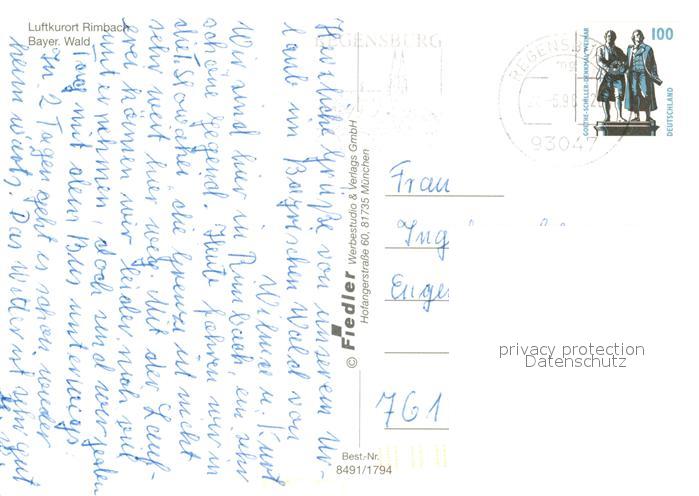 Luftkurort Rimbach
Bayer. Wald
Herzliche Grüße von unserem Ur-
laub im Bayrischen Wald von
Wilma u. Kurt
Wir sind hier in Rimbach, ein sehr
schöne Gegend. Heute fahren wir in
die Slowakei, die Grenze ist nicht
sehr weit hier weg. Mit der Lauf-
erei können wir leider nich viel
unternehmen, doch sind wir jeden
Tag mit dem Bus unterwegs
In 2 Tagen geht es schon wieder
heim wärts. Das Wetter ist sehr gut
© Fiedler Werbestudio & Verlags GmbH
Hofangerstraße 60, 81735 München
Best.-Nr.
8491/1794
REGENSBURG
REGENSBURG
93047
GOETHE-SCHILLER-DENKMAL WEIMAR
100
DEUTSCHLAND
Frau
Ing
Euge
761
privacy protection
Datenschutz